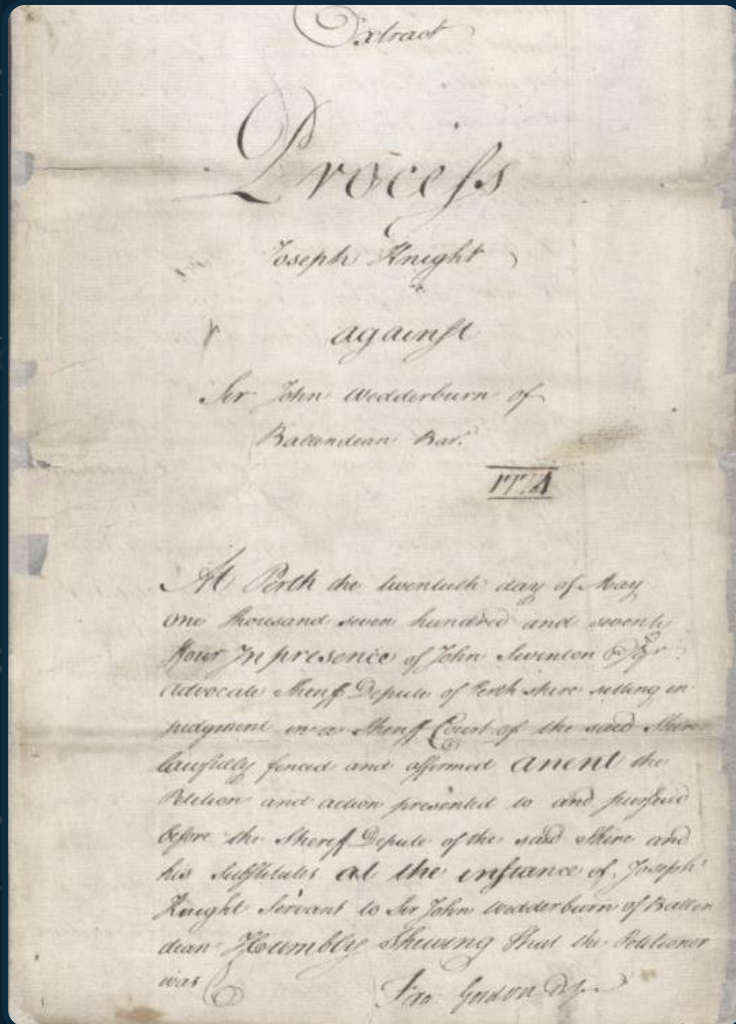 Extract
Process
Joseph Knight
against
Sir John Wedderburn of
Ballendean Bart.
1774
At Perth the twentieth day of May
One thousand seven hundred and seventy
ffour In presence of John Swinton Esqr.
Advocate Sheriff Depute of Perth shire sitting in
judgment in a Sheriff Court of the said Shire
lawfully fenced and affirmed anent the
Petition and action presented to and pursued
before the Sheriff Depute of the said Shire and
his Substitutes at the instance of Joseph
Knight Servant to Sir John Wedderburn of Ballen
dean Humbly Shewing That the Petitioner
was
Gordon